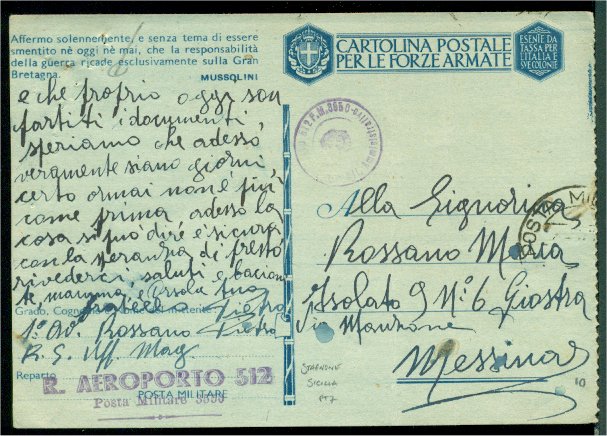 Affermo solennemente, e senza tema di essere
smentito nè oggi nè mai, che la responsabilità
della guerra ricade esclusivamente sulla Gran
Bretagna.
MUSSOLINI
e che proprio oggi son
partiti i documenti,
speriamo che adesso
veramente siano giorni,
certo ormai non è più
come prima, adesso la
cosa si può dire è sicura
con la speranza di presto
rivederci saluti e bacione
te, mamma, e Orsola tuo
Pietro
Grado, Cognome e Nome del mittente
1° Av. Rossano Pietro
R. G. Uff. Mag
Reparto
R. AEROPORTO 512
Posta Militare 3550
POSTA MILITARE
CARTOLINA POSTALE
PER LE FORZE ARMATE
ESENTE DA
TASSA PER
L'ITALIA E
SVE COLONIE
512 P.M. 3550
POSTA MIL
Alla Signorina
Rossano Maria
Isolato 9 N° 6 Giostra
Via Manzone
Messina
STAGNONE
SICILIA
PT7
10